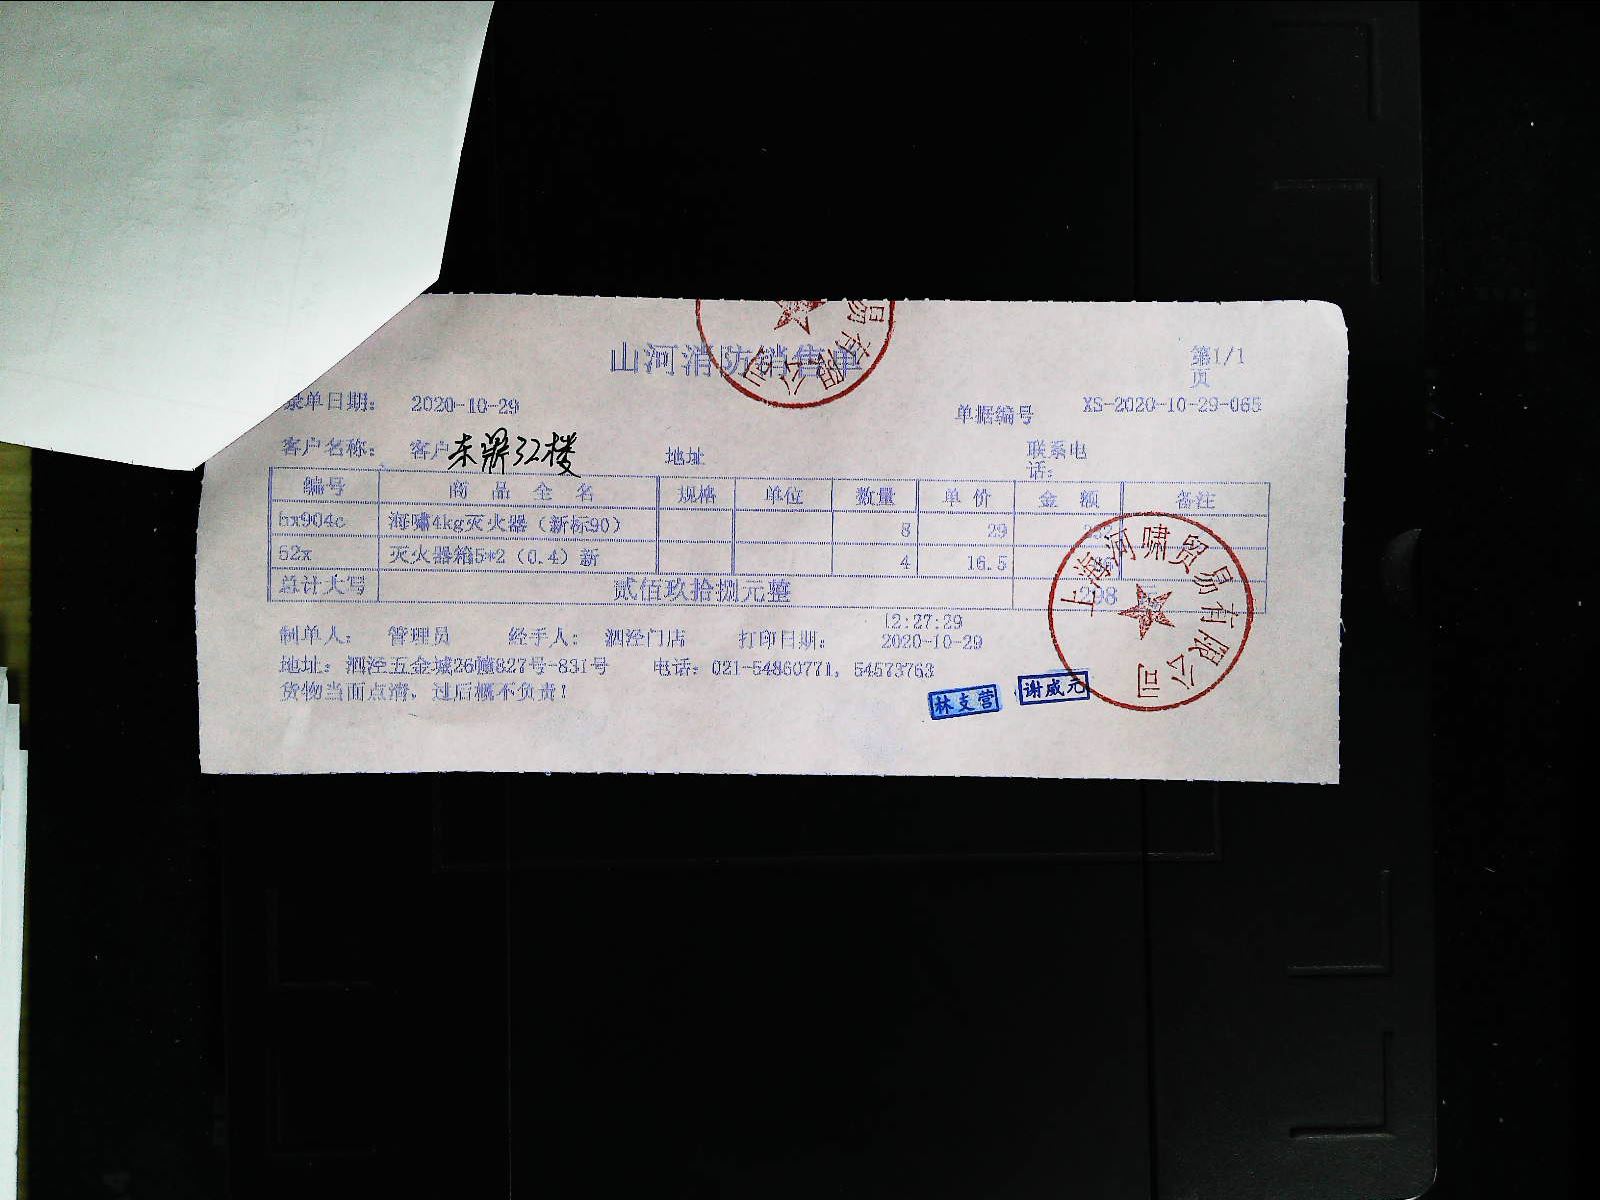 山河消防销售单
第1/1
页
录单日期: 2020-10-29
单据编号 XS-2020-10-29-065
客户名称: 客户 东鼎32楼 地址 联系电
话:
编号 商品全名 规格 单位 数量 单价 金额 备注
hx904c 海啸4kg灭火器（新标90） 8 29
52x 灭火器箱5*2（0.4）新 4 16.5
总计大写 贰佰玖拾捌元整 298 元
12:27:29
制单人: 管理员 经手人: 泗泾门店 打印日期: 2020-10-29
地址: 泗泾五金城26幢827号-831号 电话: 021-54860771, 54573763
货物当面点清, 过后概不负责!
林支营 谢威元
上海河啸贸易有限公司
贸易有限公司